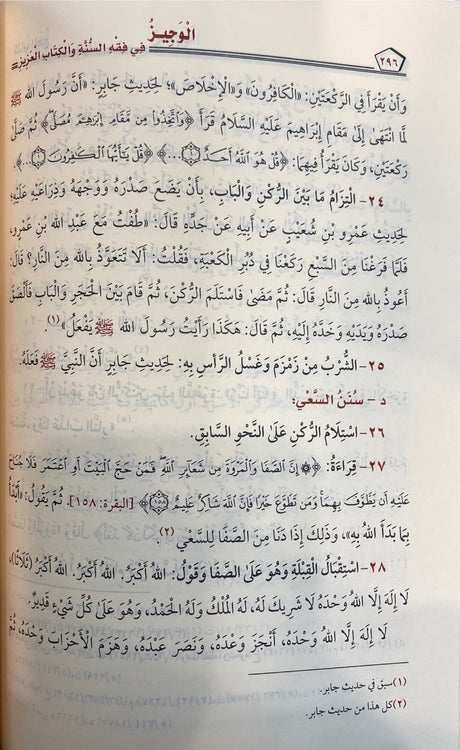 الْوَجِيزُ
فِي فِقْهِ السُّنَّةِ وَالْكِتَابِ الْعَزِيزِ
٢٩٦
وَأَنْ يَقْرَأَ فِي الرَّكْعَتَيْنِ: «الْكَافِرُونَ» وَ«الْإِخْلَاصَ»؛ لِحَدِيثِ جَابِرٍ: «أَنَّ رَسُولَ اللهِ ﷺ
لَمَّا انْتَهَىٰ إِلَىٰ مَقَامِ إِبْرَاهِيمَ عَلَيْهِ السَّلَامُ قَرَأَ ﴿وَاتَّخِذُوا مِن مَّقَامِ إِبْرَاهِيمَ مُصَلًّى﴾ ثُمَّ صَلَّىٰ
رَكْعَتَيْنِ، وَكَانَ يَقْرَأُ فِيهِمَا: ﴿قُلْ هُوَ اللَّهُ أَحَدٌ ۝١...﴾ ﴿قُلْ يَا أَيُّهَا الْكَافِرُونَ ۝١...﴾
٢٤- الْتِزَامُ مَا بَيْنَ الرُّكْنِ وَالْبَابِ، بِأَنْ يَضَعَ صَدْرَهُ وَوَجْهَهُ وَذِرَاعَيْهِ عَلَيْهِ؛
لِحَدِيثِ عَمْرِو بْنِ شُعَيْبٍ عَنْ أَبِيهِ عَنْ جَدِّهِ قَالَ: «طُفْتُ مَعَ عَبْدِ اللهِ بْنِ عَمْرٍو،
فَلَمَّا فَرَغْنَا مِنَ السَّبْعِ رَكَعْنَا فِي دُبُرِ الْكَعْبَةِ، فَقُلْتُ: أَلَا تَتَعَوَّذُ بِاللهِ مِنَ النَّارِ؟ قَالَ:
أَعُوذُ بِاللهِ مِنَ النَّارِ قَالَ: ثُمَّ مَضَىٰ فَاسْتَلَمَ الرُّكْنَ، ثُمَّ قَامَ بَيْنَ الْحَجَرِ وَالْبَابِ فَأَلْصَقَ
صَدْرَهُ وَيَدَيْهِ وَخَدَّهُ إِلَيْهِ، ثُمَّ قَالَ: هَكَذَا رَأَيْتُ رَسُولَ اللهِ ﷺ يَفْعَلُ» (١).
٢٥- الشُّرْبُ مِنْ زَمْزَمَ وَغَسْلُ الرَّأْسِ بِهِ: لِحَدِيثِ جَابِرٍ أَنَّ النَّبِيَّ ﷺ فَعَلَهُ.
د - سُنَنُ السَّعْيِ:
٢٦- اسْتِلَامُ الرُّكْنِ عَلَىٰ النَّحْوِ السَّابِقِ.
٢٧- قِرَاءَةُ: ﴿۞ إِنَّ الصَّفَا وَالْمَرْوَةَ مِن شَعَائِرِ اللَّهِ فَمَنْ حَجَّ الْبَيْتَ أَوِ اعْتَمَرَ فَلَا جُنَاحَ
عَلَيْهِ أَن يَطَّوَّفَ بِهِمَا وَمَن تَطَوَّعَ خَيْرًا فَإِنَّ اللَّهَ شَاكِرٌ عَلِيمٌ ۝١٥٨﴾ [البقرة: ١٥٨]. ثُمَّ يَقُولُ: «أَبْدَأُ
بِمَا بَدَأَ اللهُ بِهِ»، وَذَلِكَ إِذَا دَنَا مِنَ الصَّفَا لِلسَّعْيِ (٢).
٢٨- اسْتِقْبَالُ الْقِبْلَةِ وَهُوَ عَلَىٰ الصَّفَا وَقَوْلُ: اللهُ أَكْبَرُ. اللهُ أَكْبَرُ. اللهُ أَكْبَرُ (ثَلَاثًا)،
لَا إِلَهَ إِلَّا اللهُ وَحْدَهُ لَا شَرِيكَ لَهُ، لَهُ الْمُلْكُ وَلَهُ الْحَمْدُ، وَهُوَ عَلَىٰ كُلِّ شَيْءٍ قَدِيرٌ.
لَا إِلَهَ إِلَّا اللهُ وَحْدَهُ، أَنْجَزَ وَعْدَهُ، وَنَصَرَ عَبْدَهُ، وَهَزَمَ الْأَحْزَابَ وَحْدَهُ، ثُمَّ
(١) سبق في حديث جابر.
(٢) كل هذا من حديث جابر.